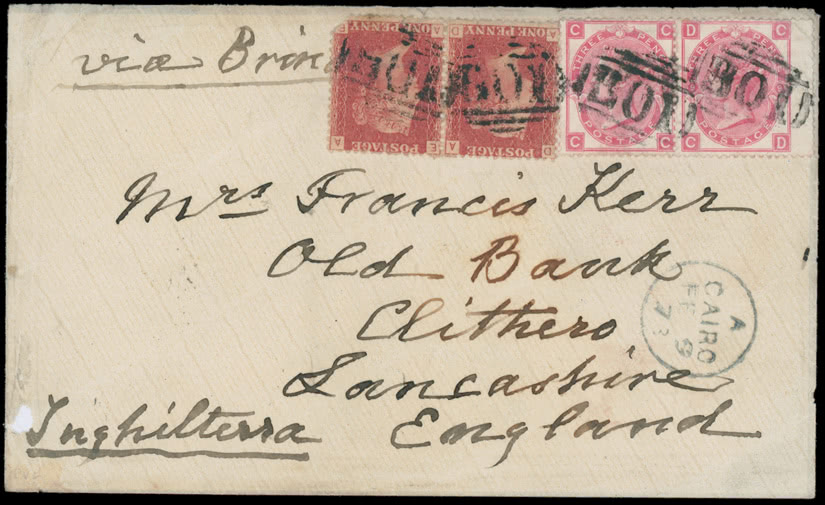 viæ Brin
ONE PENNY
POSTAGE
E A
A E
ONE PENNY
POSTAGE
D A
A D
THREE PENCE
POSTAGE
C C
C C
THREE PENCE
POSTAGE
D C
C D
B01
B01
B01
B01
Mrs Francis Kerr
Old Bank
Clithero
Lancashire
England
Inghilterra
A
CAIRO
FE 9
73